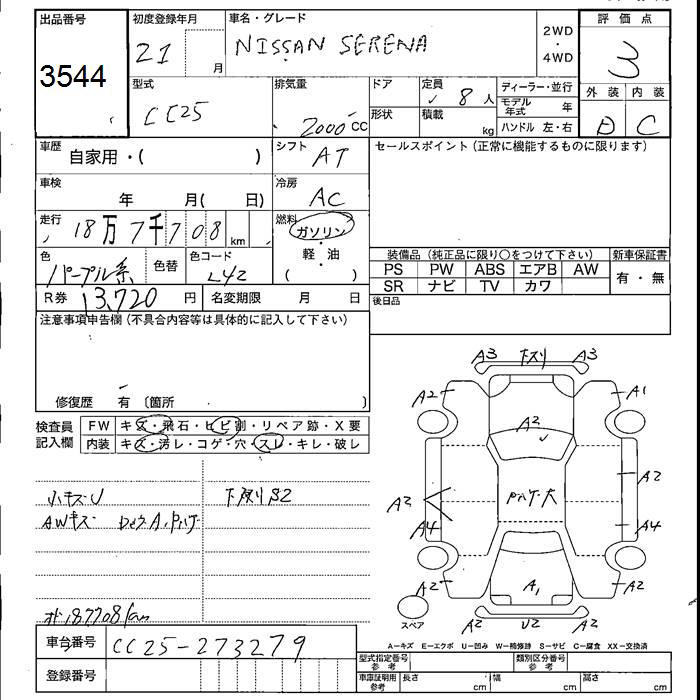 出品番号
3544
初度登録年月
21 月
車名・グレード
NISSAN SERENA
2WD
・
4WD
評価点
3
外装 内装
D C
型式
CC25
排気量
2000 CC
ドア
形状
定員
8 人
積載
kg
ディーラー・並行
モデル年式 年
ハンドル 左・右
車歴
自家用・( )
シフト
AT
セールスポイント(正常に機能するものに限ります)
車検
年 月( 日)
冷房
AC
走行
18万7千708 km
燃料
ガソリン
・
軽・油
( )
色
パープル系
色替
色コード
L42
装備品(純正品に限り○をつけて下さい)
新車保証書
PS PW ABS エアB AW
SR ナビ TV カワ
有・無
R券 13,720 円
名変期限 月 日
後日品
注意事項申告欄(不具合内容等は具体的に記入して下さい)
修復歴 有 〔箇所 〕
検査員
記入欄
FW キズ・飛石・ヒビ割・リペア跡・X要
内装 キズ・汚レ・コゲ・穴・スレ・キレ・破レ
小キズU
AWキズ
下廻りS2
187708km
A3 下スリ A3
A2 A1
A2
A2 A2
A4 A4
A2 A1 A2
A2 U2 A2
スペア
A−キズ E−エクボ U−凹み W−補修跡 S−サビ C−腐食 XX−交換済
車台番号 CC25-273279
登録番号
型式指定番号
参考
類別区分番号
参考
車庫証明用
参考
長さ cm
幅 cm
高さ cm